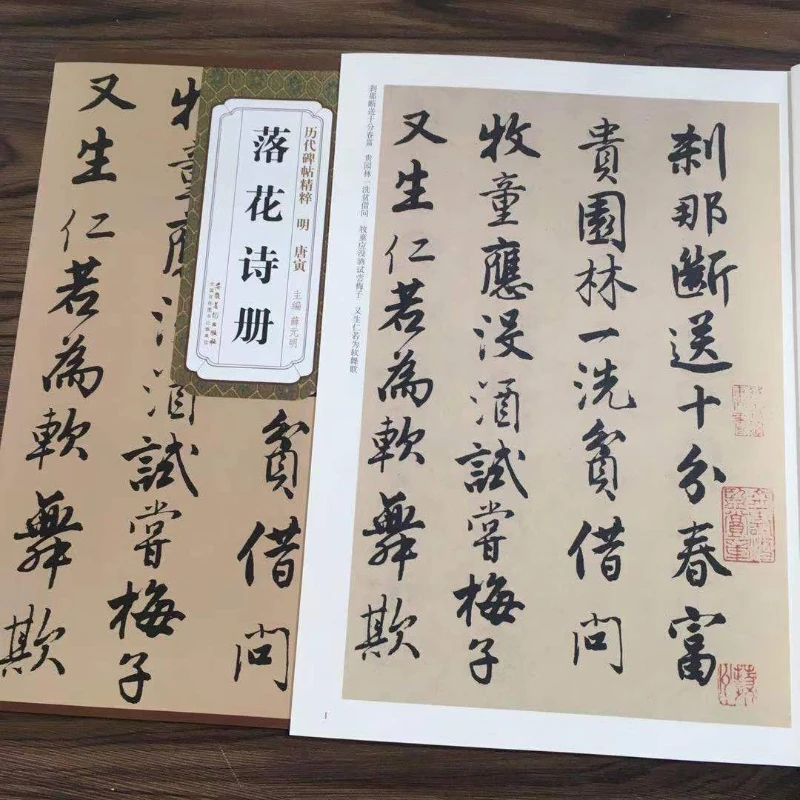 历代碑帖精粹 明 唐寅
落花诗册
主编 薛元明
安徽美术出版社
全国百佳图书出版单位
貧借問
牧童酒試嘗梅子
又生仁若為軟舞欺
刹那斷送十分春富
貴園林一洗貧借問
牧童應没酒試嘗梅子
又生仁若為軟舞欺
刹那断送十分春富 贵园林一洗贫借问 牧童应没酒试尝梅子 又生仁若为软舞欺
1